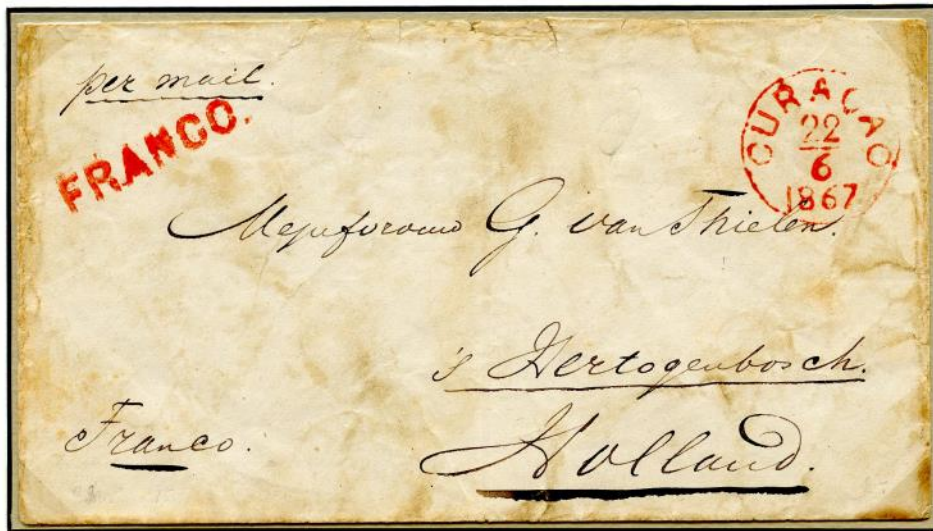 per mail.
FRANCO.
CURACAO
22
6
1867
Mejufvrouw G. van Thielen.
's Hertogenbosch.
Holland.
Franco.